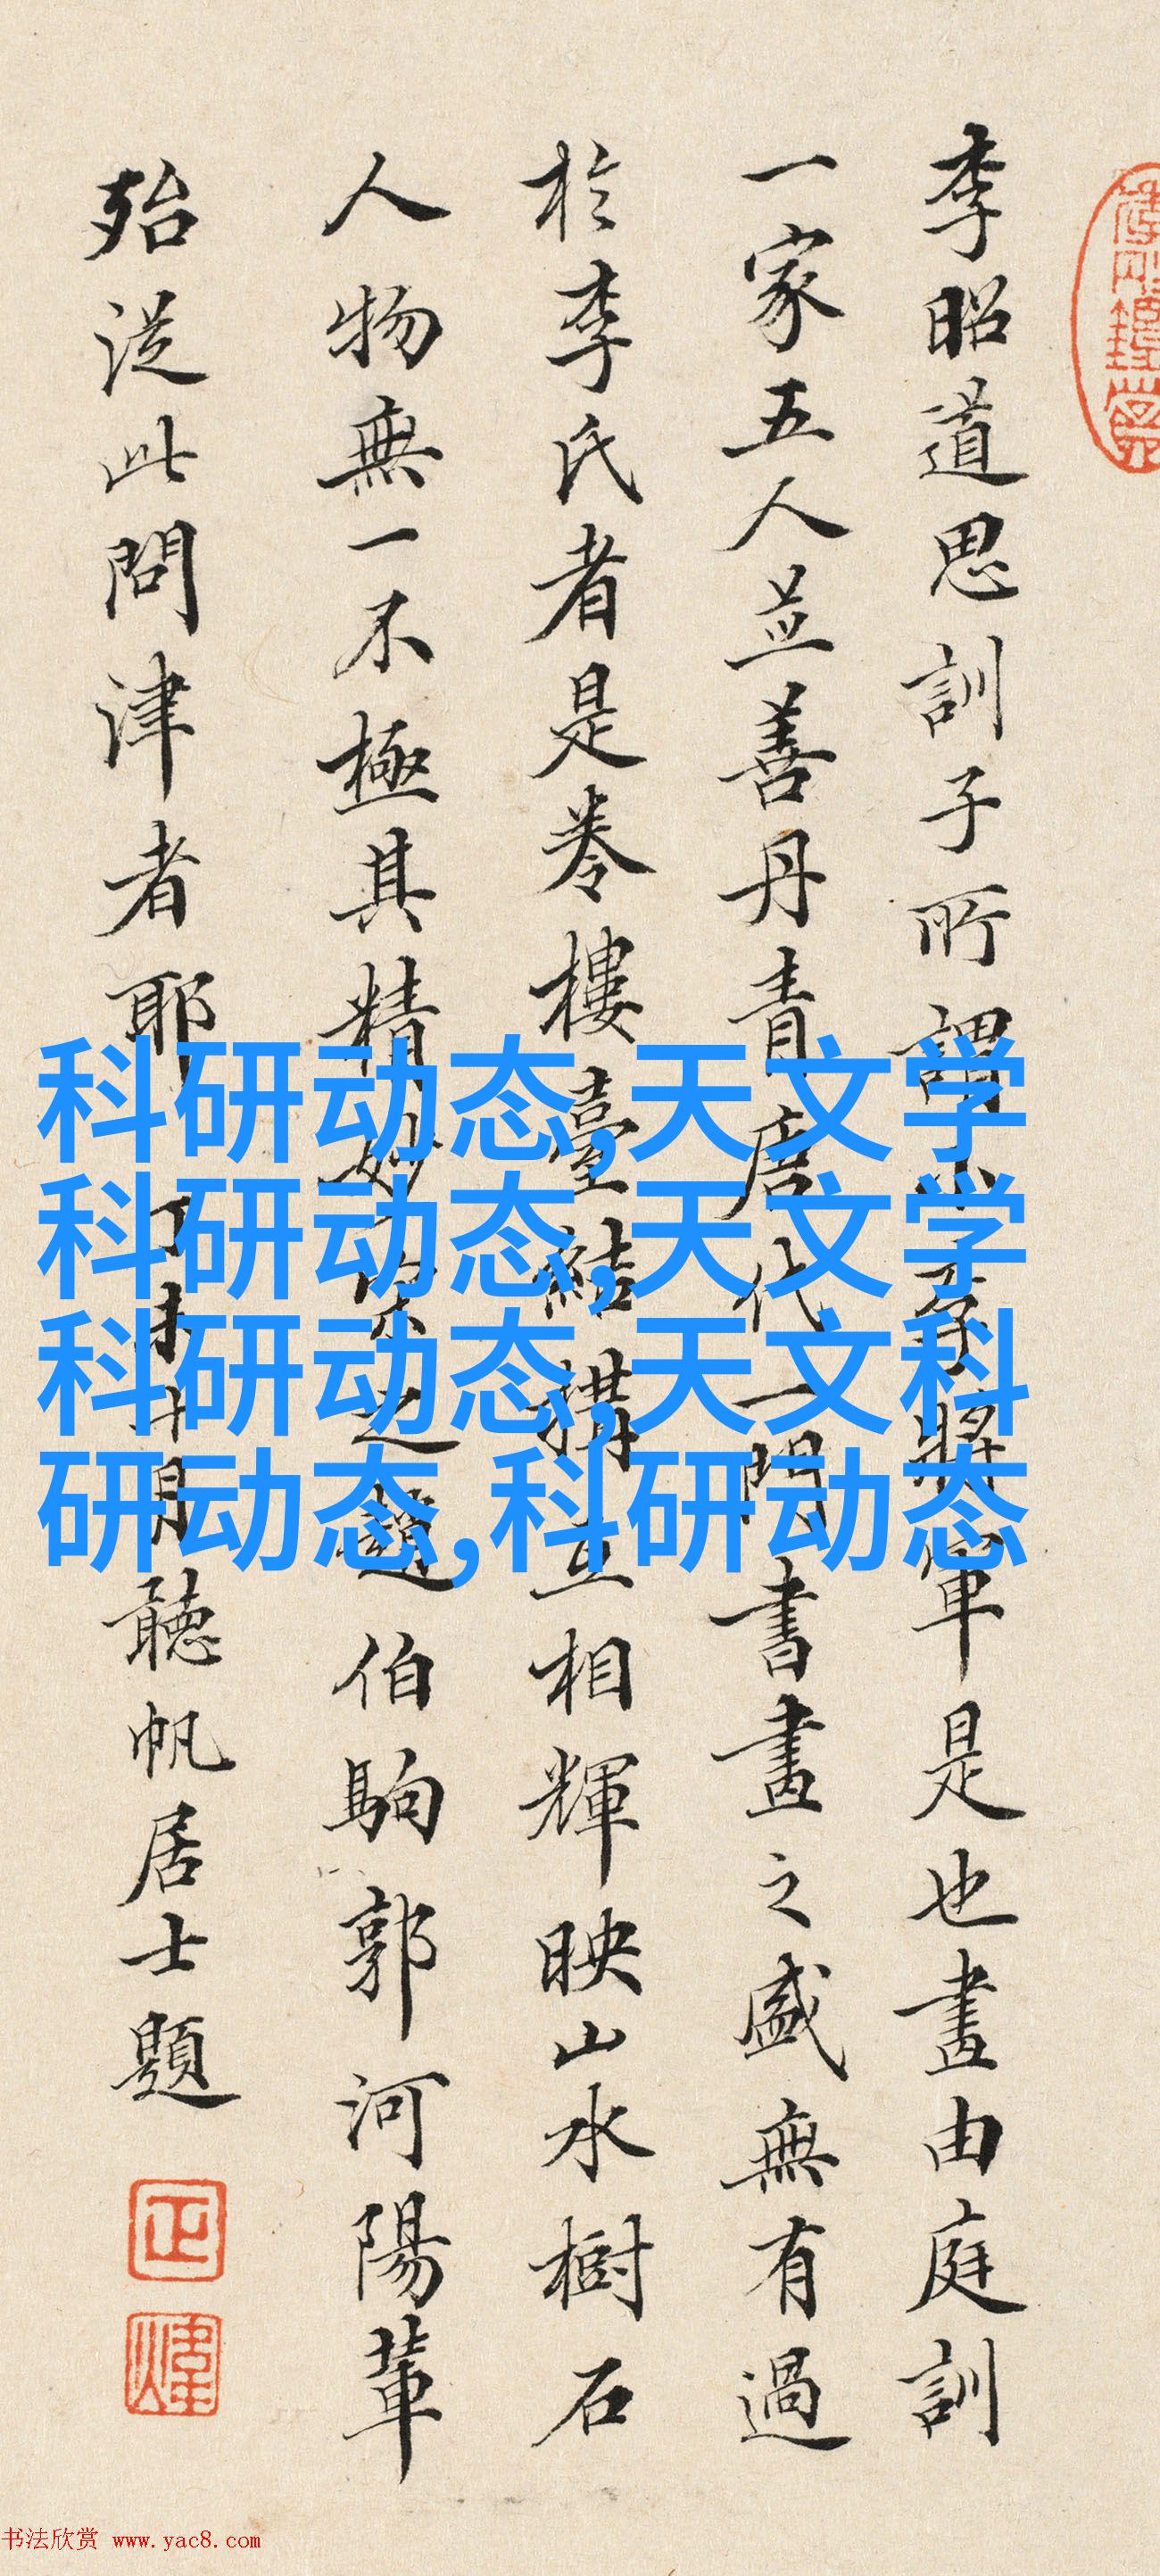 李昭道思訓子所謂小李將軍是也畫由庭訓
一家五人並善丹青唐代一門書畫之盛無有過
於李氏者是卷樓臺結構互相輝映山水樹石
人物無一不極其精妙後之趙伯駒郭河陽輩
殆從此問津者耶丁未十月聽帆居士題
科研动态,天文学
科研动态,天文学
科研动态,天文科
研动态,科研动态
书法欣赏 www.yac8.com